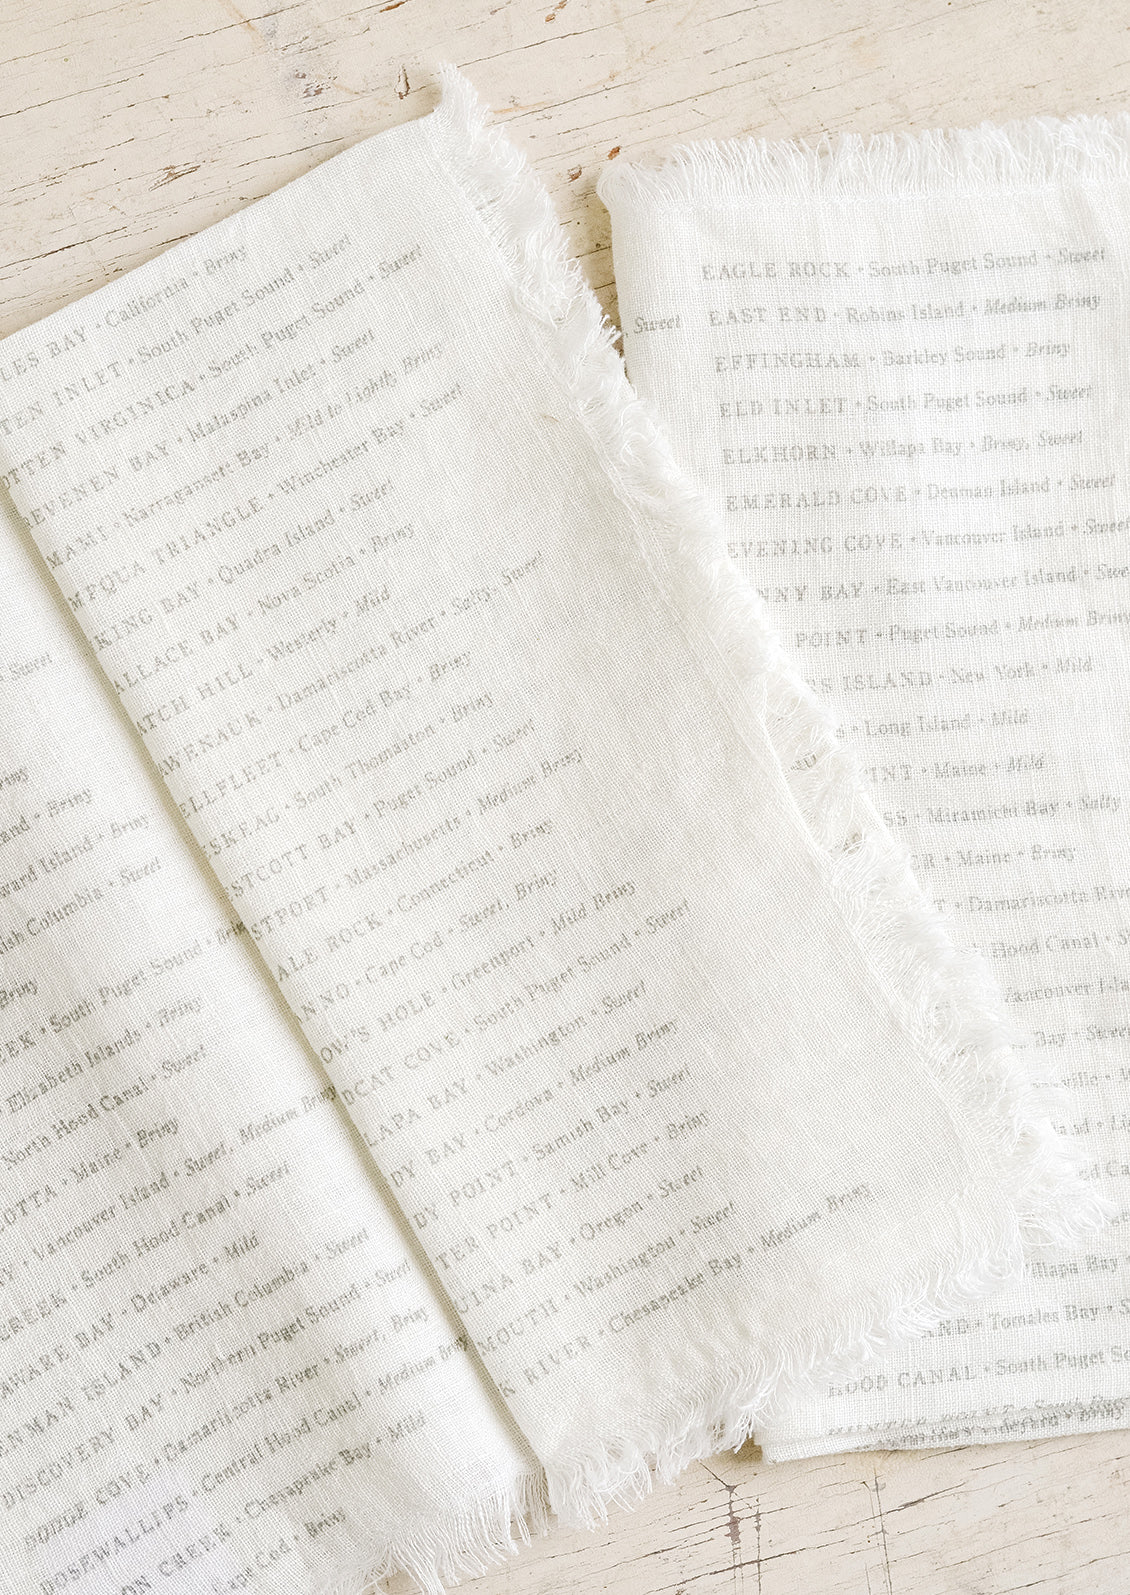 LES BAY • California • Briny
TEN INLET • South Puget Sound • Sweet
OTTEN VIRGINICA • South Puget Sound • Sweet
EVENEN BAY • Malaspina Inlet • Sweet
MAMI • Narragansett Bay • Mild to Lightly Briny
MPQUA TRIANGLE • Winchester Bay • Sweet
KING BAY • Quadra Island • Sweet
ALLACE BAY • Nova Scotia • Briny
ATCH HILL • Westerly • Mild
AWENAUK • Damariscotta River • Salty, Sweet
ELLFLEET • Cape Cod Bay • Briny
ESKEAG • South Thomaston • Briny
ESTCOTT BAY • Puget Sound • Sweet
STPORT • Massachusetts • Medium Briny
ALE ROCK • Connecticut • Briny
ANNO • Cape Cod • Sweet, Briny
OW'S HOLE • Greenport • Mild Briny
DCAT COVE • South Puget Sound • Sweet
LAPA BAY • Washington • Sweet
DY BAY • Cordova • Medium Briny
DY POINT • Samish Bay • Sweet
TER POINT • Mill Cove • Briny
UINA BAY • Oregon • Sweet
MOUTH • Washington • Sweet
K RIVER • Chesapeake Bay • Medium Briny
Sweet
Briny
and • Briny
ward Island • Briny
ish Columbia • Sweet
South Puget Sound • Briny
Briny
EEK • South Puget Sound • Briny
Elizabeth Islands • Briny
North Hood Canal • Sweet
OTTA • Maine • Briny
Y • Vancouver Island • Sweet, Medium Briny
CREEK • South Hood Canal • Sweet
AWARE BAY • Delaware • Mild
ENMAN ISLAND • British Columbia • Sweet
DISCOVERY BAY • Northern Puget Sound • Sweet
DODGE COVE • Damariscotta River • Sweet, Briny
DOSEWALLIPS • Central Hood Canal • Medium Briny
ON CREEK • Chesapeake Bay • Mild
Cape Cod • Briny
EAGLE ROCK • South Puget Sound • Sweet
Sweet
EAST END • Robins Island • Medium Briny
EFFINGHAM • Barkley Sound • Briny
ELD INLET • South Puget Sound • Sweet
ELKHORN • Willapa Bay • Briny, Sweet
EMERALD COVE • Denman Island • Sweet
EVENING COVE • Vancouver Island • Sweet
NNY BAY • East Vancouver Island • Swe
POINT • Puget Sound • Medium Briny
S ISLAND • New York • Mild
S • Long Island • Mild
INT • Maine • Mild
SS • Miramichi Bay • Salty
ER • Maine • Briny
T • Damariscotta Rive
Hood Canal • S
Vancouver Isla
Bay • Sweet
ville •
and • Li
od Ca
Willapa Bay •
AND • Tomales Bay • S
HOOD CANAL • South Puget So
Briny